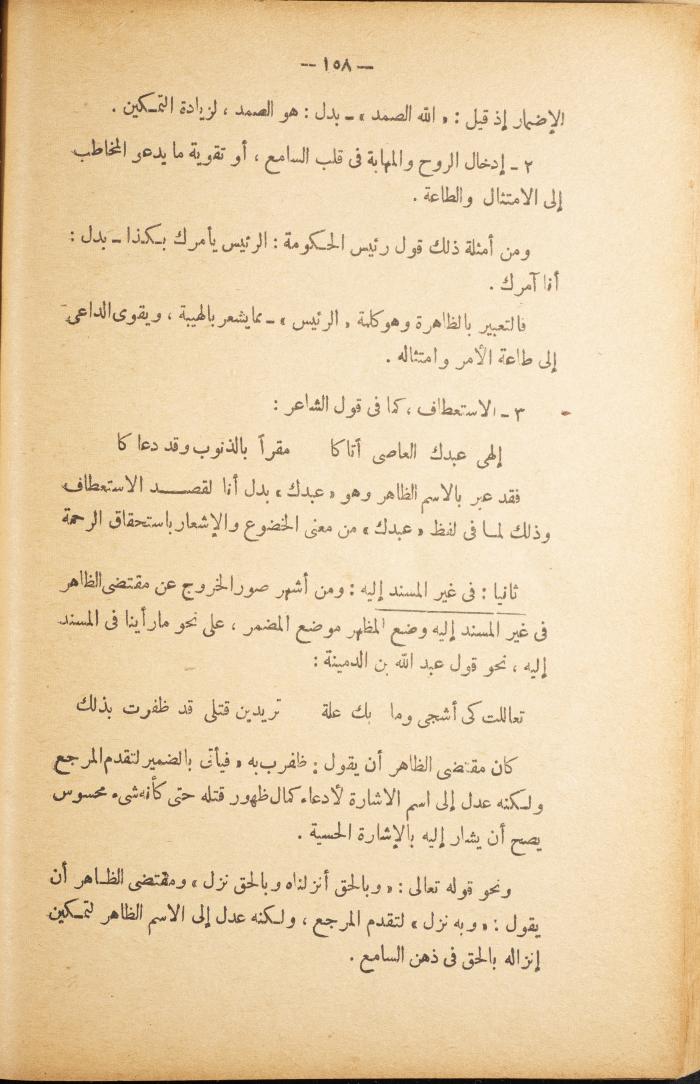 — ١٥٨ —
الإضمار إذ قيل : « الله الصمد » ـ بدل : هو الصمد ، لزيادة التمكين .
٢ ـ إدخال الروح والمهابة فى قلب السامع ، أو تقوية ما يدعو المخاطب
إلى الامتثال والطاعة .
ومن أمثلة ذلك قول رئيس الحكومة : الرئيس يأمرك بكذا ـ بدل :
أنا آمرك .
فالتعبير بالظاهرة وهو كلمة « الرئيس » ـ مما يشعر بالهيبة ، ويقوى الداعى
إلى طاعة الأمر وامتثاله .
٣ ـ الاستعطاف ، كما فى قول الشاعر :
إلهى عبدك العاصى أتاكا مقرأ بالذنوب وقد دعاكا
فقد عبر بالاسم الظاهر وهو « عبدك » بدل أنا لقصد الاستعطاف
وذلك لما فى لفظ « عبدك » من معنى الخضوع والإشعار باستحقاق الرحمة
ثانيا : فى غير المسند إليه : ومن أشهر صور الخروج عن مقتضى الظاهر
فى غير المسند إليه وضع المظهر موضع المضمر ، على نحو ما رأينا فى المسند
إليه ، نحو قول عبد الله بن الدمينة :
تعاللت كى أشجى وما بك علة تريدين قتلى قد ظفرت بذلك
كان مقتضى الظاهر أن يقول : ظفرب به « فيأتى بالضمير لتقدم المرجع
ولكنه عدل إلى اسم الاشارة لأدعاء كمال ظهور قتله حتى كأنه شىء محسوس
يصح أن يشار إليه بالإشارة الحسية .
ونحو قوله تعالى : « وبالحق أنزلناه وبالحق نزل » ومقتضى الظاهر أن
يقول : « وبه نزل » لتقدم المرجع ، ولكنه عدل إلى الاسم الظاهر لتمكين
إنزاله بالحق فى ذهن السامع .